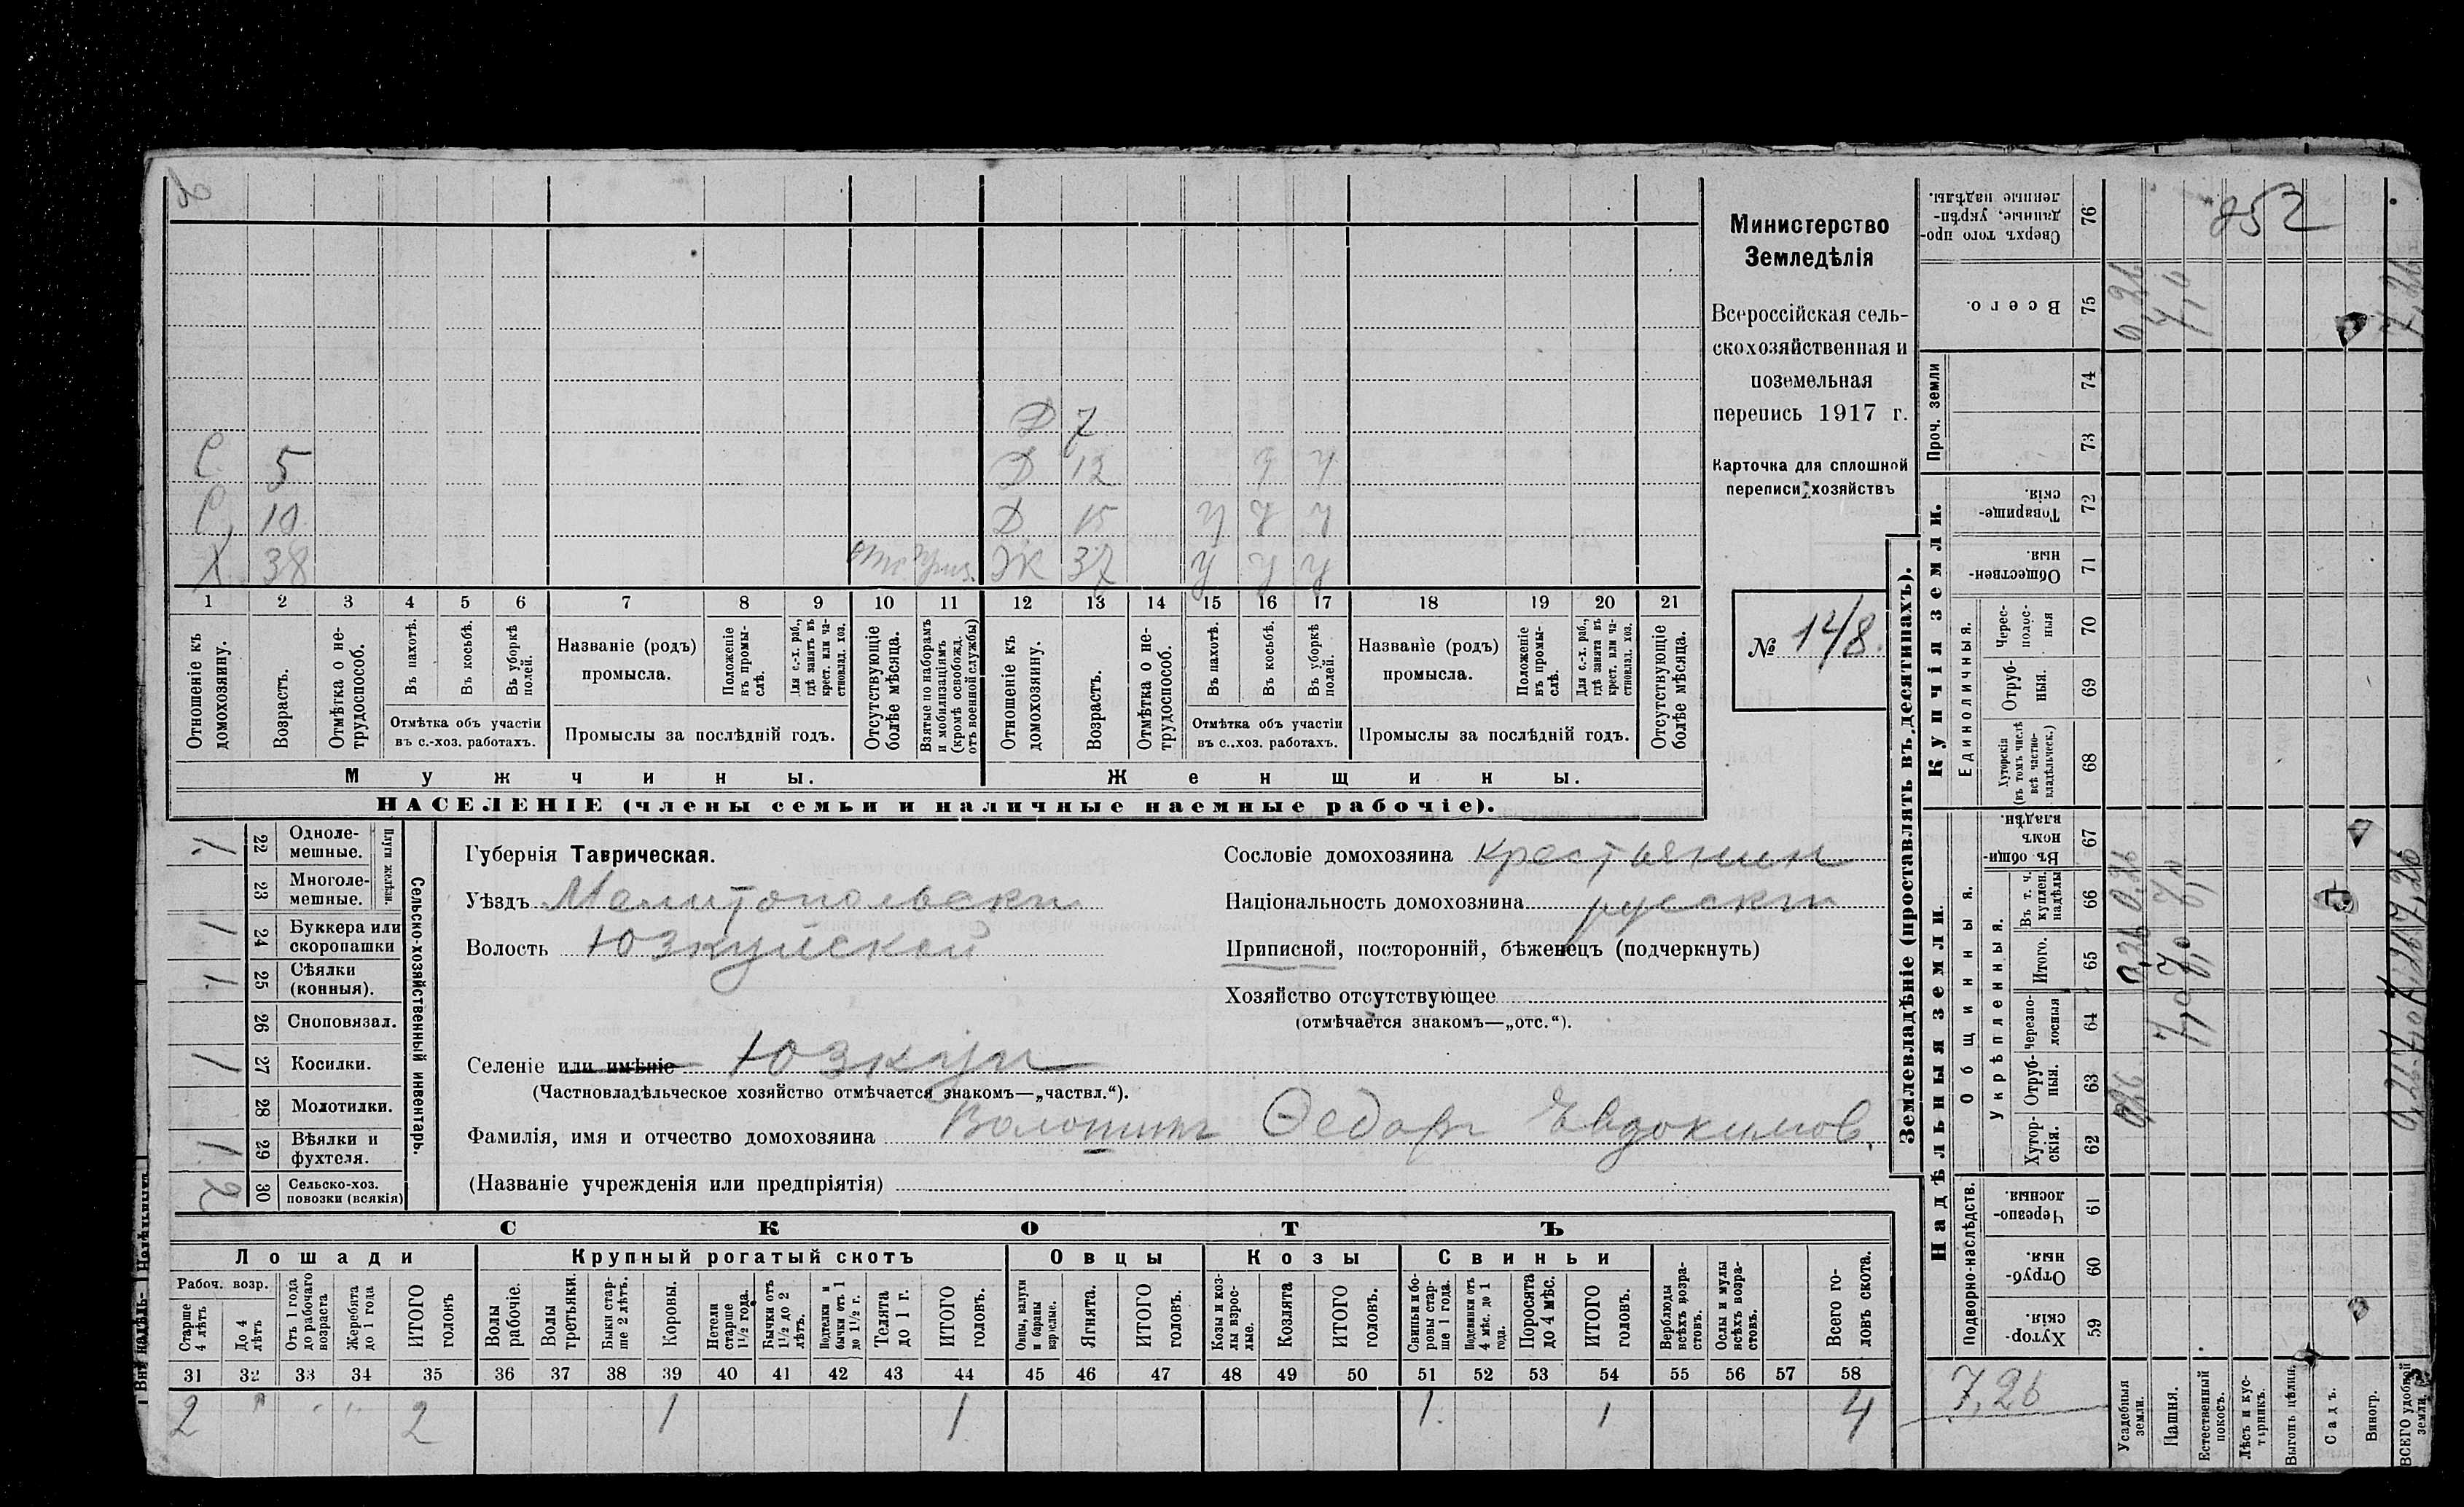 С 5
С 10
Х 38
Д 7
Д 12 у у
Д 15 у у у
Ж 37 у у у
1 2 3 4 5 6 7 8 9 10 11 12 13 14 15 16 17 18 19 20 21
Отношеніе къ домохозяину.
Возрастъ.
Отмѣтка о нетрудоспособ.
Въ пахотѣ.
Въ косьбѣ.
Въ уборкѣ полей.
Отмѣтка объ участіи
въ с.-хоз. работахъ.
Названіе (родъ)
промысла.
Положеніе въ промыслѣ.
Для с.-х. раб., гдѣ занятъ въ крест. или частновлад. хоз.
Промыслы за послѣдній годъ.
Отсутствующіе болѣе мѣсяца.
Взятые по наборамъ и мобилизаціямъ (кромѣ освобожд. отъ военной службы)
Отношеніе къ домохозяину.
Возрастъ.
Отмѣтка о нетрудоспособ.
Въ пахотѣ.
Въ косьбѣ.
Въ уборкѣ полей.
Отмѣтка объ участіи
въ с..хоз. работахъ.
Названіе (родъ)
промысла.
Положеніе въ промыслѣ.
Для с.-х. раб., гдѣ занята въ крест. или частновлад. хоз.
Промыслы за послѣдній годъ.
Отсутствующіе болѣе мѣсяца.
Мужчины. Женщины.
НАСЕЛЕНІЕ (члены семьи и наличные наемные рабочіе).
Министерство
Земледѣлія
Всероссійская сель-
скохозяйственная и
поземельная
перепись 1917 г.
Карточка для сплошной
переписи хозяйствъ
№ 148.
Плуги желѣзн.
22 Одноле-
мешные. 1.
23 Многоле-
мешные.
24 Буккера или
скоропашки 1
25 Сѣялки
(конныя). 1.
26 Сноповязал.
27 Косилки. 1
28 Молотилки.
29 Вѣялки и
фухтеля. 1.
30 Сельско-хоз.
повозки (всякія) 2
Сельско-хозяйственный инвентарь.
Губернія Таврическая.
Уѣздъ Мелитопольскій
Волость Юзкуйской
Селеніе или имѣніе Юзкуи
(Частновладѣльческое хозяйство отмѣчается знакомъ—„частвл.“).
Фамилія, имя и отчество домохозяина Волошинъ Ѳедоръ Евдокимов.
(Названіе учрежденія или предпріятія)
Сословіе домохозяина крестьянин
Національность домохозяина русскій
Приписной, посторонній, бѣженецъ (подчеркнуть)
Хозяйство отсутствующее
(отмѣчается знакомъ—„отс.“).
СКОТЪ
Лошади Крупный рогатый скотъ Овцы Козы Свиньи
Рабоч. возр.
Старше 4 лѣтъ
До 4 лѣтъ
Отъ 1 года до рабочаго возраста
Жеребята до 1 года
ИТОГО головъ
Волы рабочіе.
Волы третьяки.
Быки старше 2 лѣтъ.
Коровы.
Нетели старше 1½ года.
Бычки отъ 1½ до 2 лѣтъ.
Подтелки и бычки отъ 1 до 1½ г.
Телята до 1 г.
ИТОГО головъ.
Овцы, валухи и бараны взрослые.
Ягнята.
ИТОГО головъ.
Козы и козлы взрослые.
Козлята
ИТОГО головъ.
Свиньи и боровы старше 1 года.
Подсвинки отъ 4 мѣс. до 1 года.
Поросята до 4 мѣс.
ИТОГО головъ.
Верблюды всѣхъ возрастовъ.
Ослы и мулы всѣхъ возрастовъ.
Всего головъ скота.
31 32 33 34 35 36 37 38 39 40 41 42 43 44 45 46 47 48 49 50 51 52 53 54 55 56 57 58
2 2 1 1 1. 1 4
Землевладѣніе (проставлять въ десятинахъ).
Надѣльныя земли.
Купчія земли.
Проч. земли
Подворно-наслѣдств.
Общинныя.
Укрѣпленныя.
Единоличныя.
Сверхъ того проданные, укрѣпленные надѣлы. 76
Всего. 75
74
73
Товарищескія. 72
Общественныя. 71
Чересполосныя 70
Отрубныя. 69
Хуторскія (въ томъ числѣ всѣ частновладѣльческ.) 68
Въ общинномъ владѣн. 67
Въ т. ч. куплен. надѣлы 66
Итого. 65
Черезполосныя 64
Отрубныя. 63
Хуторскія. 62
Черезполосныя. 61
Отрубныя. 60
Хуторскія. 59
852
0,26 7,0 7,26
0,26 7,0 7,26
0,26 7,0
7,0
0,26
7,26
Усадебныя земли.
Пашня.
Естественный покосъ.
Лѣсъ и кустарникъ.
Выгонъ цѣлин.
Садъ.
Виногр.
ВСЕГО удобной земли.